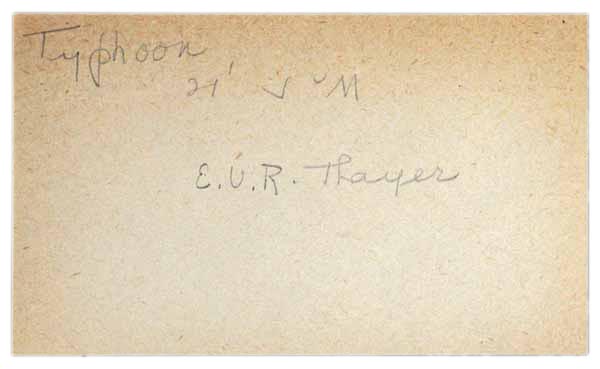 Typhoon
21'
E.V.R. Thayer